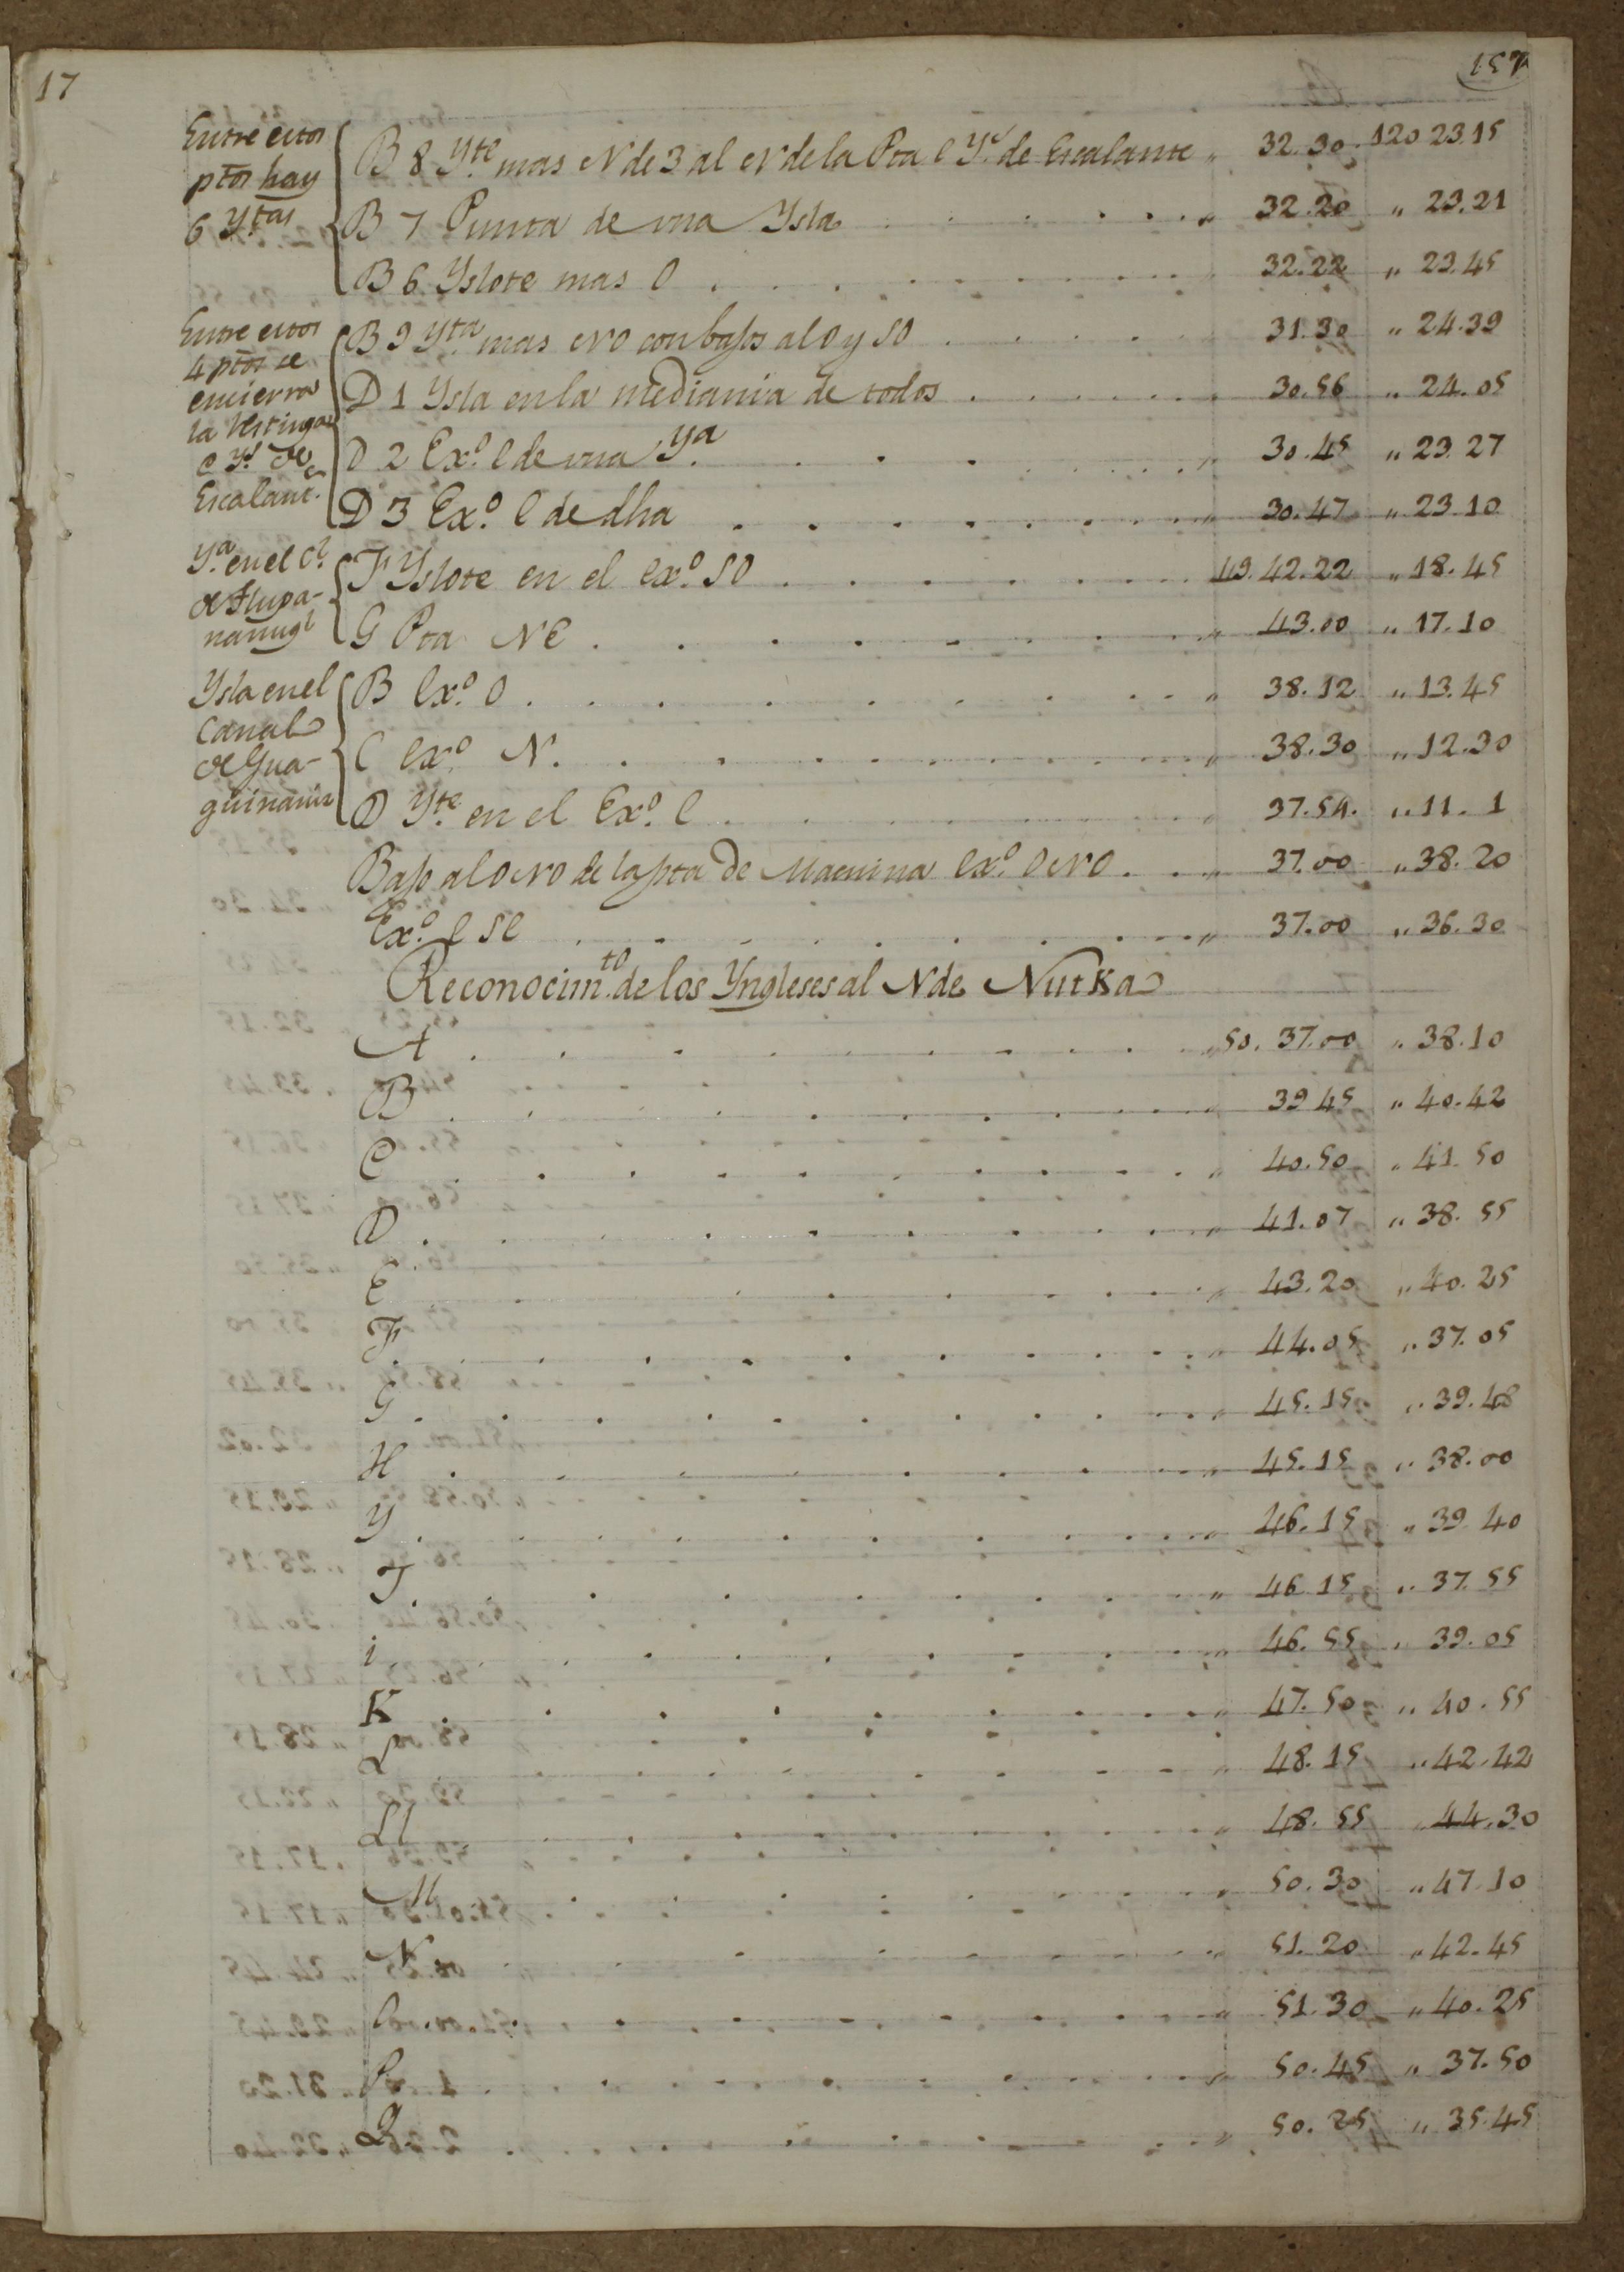 17
157
Entre estos
ptos hay
6 Ytas
B 8 Yte. mas N de 3 al N de la Pta e Ys. de Escalante „ 32.30. 120 23.15
B 7 Punta de una Ysla . . . . „ 32.20 „ 23.21
B 6 Yslote mas O . . . . „ 32.22 „ 23.45
Entre estos
4 ptos se
encierra
la restinga
e Ys. de
Escalante.
B 9 Yta. mas NO con bajos al O y SO . . . . 31.30 „ 24.39
D 1 Ysla en la mediania de todos . . . . 30.56 „ 24.05
D 2 Exo. E de una Ya. . . . . „ 30.45 „ 23.27
D 3 Exo. E de dha . . . . „ 30.47 „ 23.10
Ya. en el Cl.
de Tlupa-
nanugl
F Yslote en el exo. SO . . . . 49.42.22 „ 18.45
G Pta NE . . . . „ 43.00 „ 17.10
Ysla en el
Canal
de Gua-
guinaniz
B Exo. O . . . . „ 38.12 „ 13.45
C exo N. . . . . „ 38.30 „ 12.30
D Yte. en el Exo. E . . . . „ 37.54. „ 11. 1
Bajo al ONO de la pta de Macuina exo. ONO . . . „ 37.00 „ 38.20
Exo. E SE . . . . „ 37.00 „ 36.30
Reconocimto. de los Yngleses al N de Nutka
A . . . . „ 50. 37.00 „ 38.10
B . . . . „ 39 45 „ 40.42
C . . . . „ 40.50 „ 41.50
D . . . . „ 41.07 „ 38.55
E . . . . „ 43.20 „ 40.25
F . . . . „ 44.05 „ 37.05
G . . . . „ 45.15 „ 39.48
H . . . . „ 45.15 „ 38.00
Y . . . . „ 46.15 „ 39 40
J . . . . „ 46 15 „ 37.55
i . . . . „ 46.55 „ 39.05
K . . . . „ 47.50 „ 40.55
L . . . . „ 48.15 „ 42.42
Ll . . . . „ 48.55 „ 44.30
M . . . . „ 50.30 „ 47.10
N . . . . „ 51.20 „ 42.45
O . . . . „ 51.30 „ 40.25
P . . . . „ 50.45 „ 37.50
Q . . . . „ 50.25 „ 35.45